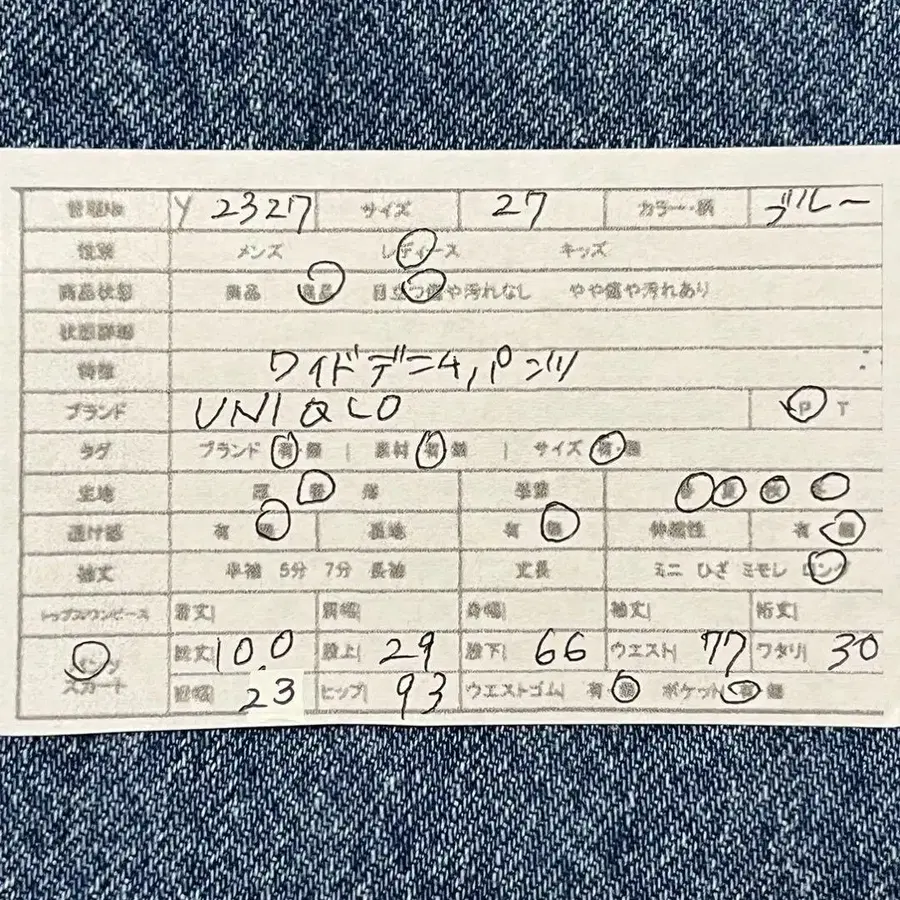 管理No Y 2327 サイズ 27 カラー・柄 ブルー
性別 メンズ レディース キッズ
商品状態 美品 目立つ傷や汚れなし やや傷や汚れあり
状態詳細
特徴 ワイドデニム パンツ
ブランド UNIQLO P T
タグ ブランド 有・無 | 素材 有・無 | サイズ 有・無
生地 厚 普 薄 季節 春 夏 秋 冬
透け感 有 無 裏地 有 無 伸縮性 有 無
袖丈 半袖 5分 7分 長袖 丈長 ミニ ひざ ミモレ ロング
トップス/ワンピース 着丈| 肩幅| 身幅| 袖丈| 裄丈|
パンツ 総丈| 100 股上| 29 股下| 66 ウエスト| 77 ワタリ| 30
スカート 裾幅| 23 ヒップ| 93 ウエストゴム| 有 無 ポケット| 有 無